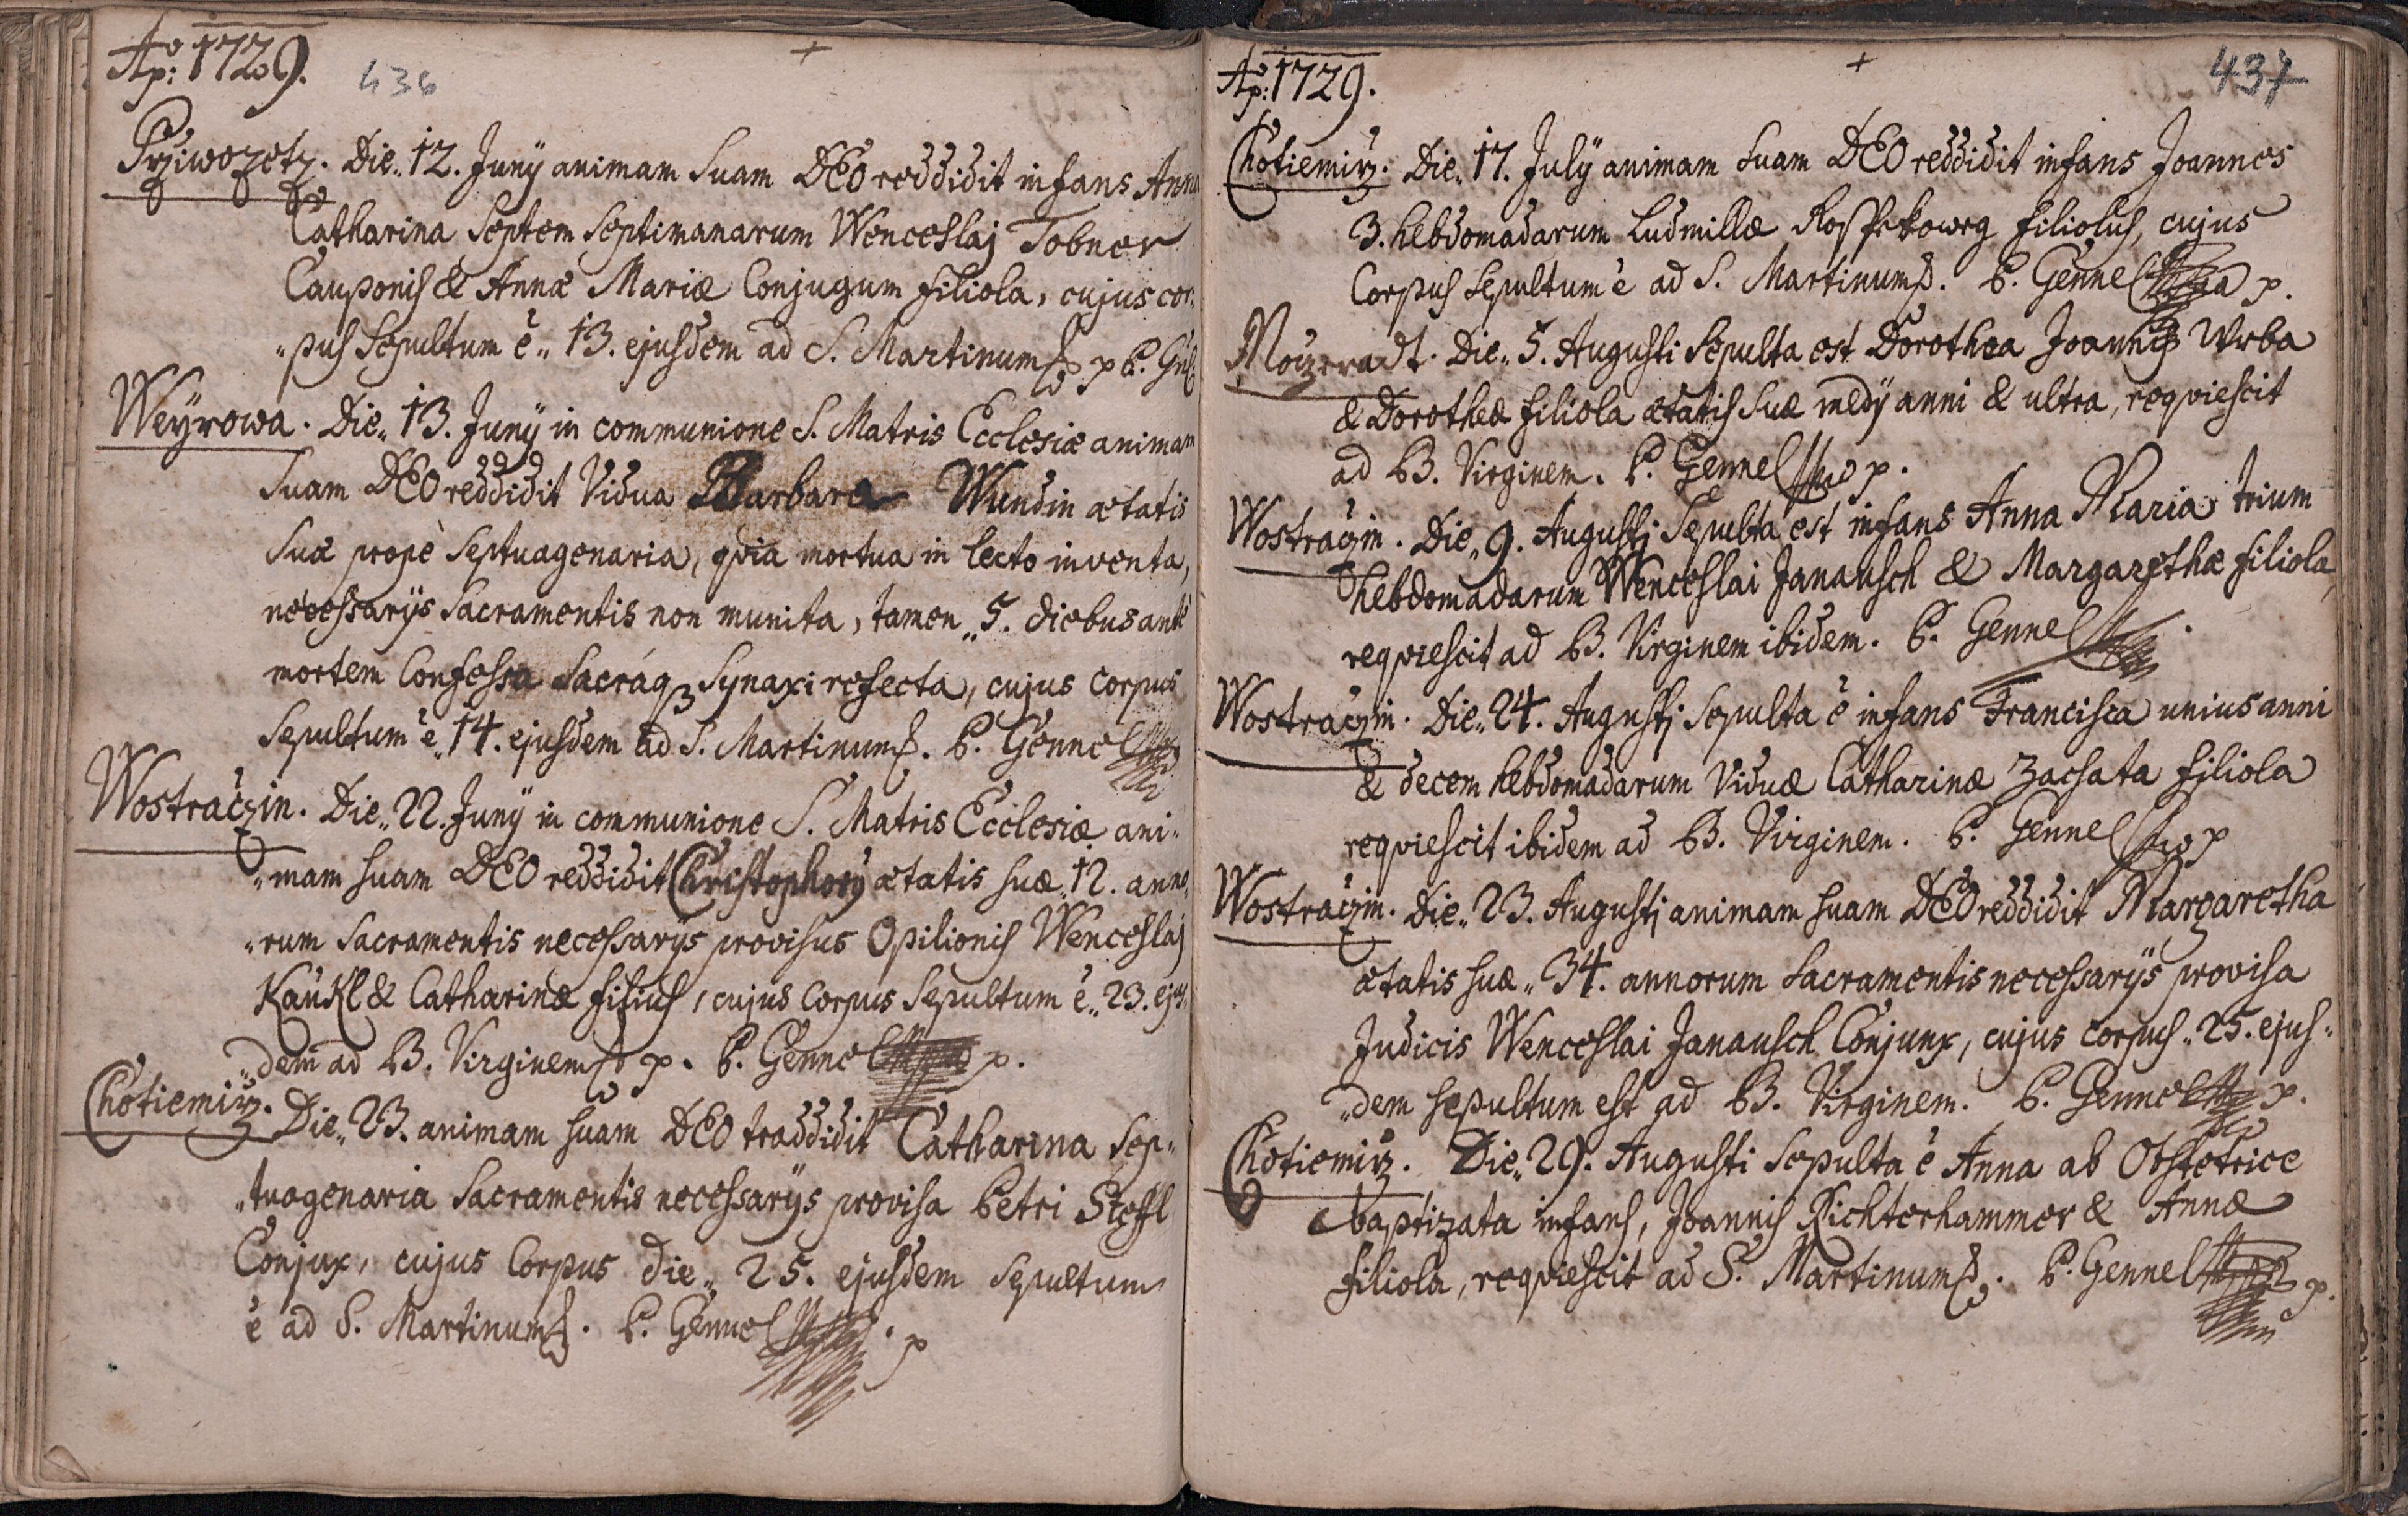 Aõ: 1729.
436
Prziwozetz. Die„ 12. Junÿ animam Suam DEO reddidit infans Anna
Catharina Septem Septimanarum Wenceslaj Tobner
Cauponis & Annæ Mariæ Conjugum filiola, cujus cor„
„pus Sepultum ẽ„ 13. ejusdem ad S. Martinum p P. Gñl:
Weÿrowa. Die„ 13. Junÿ in communione S. Matris Ecclesiæ animam
Suam DEO reddidit Vidua Barbara Wundin ætatis
Suæ propè Septuagenaria, qvia mortua in lecto inventa,
necessarÿs Sacramentis non munita, tamen„ 5. diebus ante
mortem Confessa Sacráqz Synaxi refecta, cujus corpus
Sepultum ẽ„ 14. ejusdem ad S. Martinum. P. Gennel
Wostraczin. Die„ 22. Junÿ in communione S. Matris Ecclesiæ ani„
„mam suam DEO reddidit Christophorq ætatis suæ„ 12. anno„
„rum Sacramentis necessarÿs provisus Opilionis Wenceslaj
Kaukl & Catharinæ filius, cujus Corpus Sepultum ẽ„ 23. ejus„
„dem ad B. Virginem p. P. Gennel p.
Chotiemirz. Die„ 23. animam suam DEO traddidit Catharina Sep„
„tuagenaria Sacramentis necessarÿs provisa Petri Steffl
Conjux, cujus Corpus die„ 25. ejusdem Sepultum
ẽ ad S. Martinum. P. Gennel p
Aõ: 1729.
437
Chotiemirz. Die„ 17. Julÿ animam suam DEO reddidit infans Joannes
3. hebdomadarum Ludmillæ filiolus, cujus
Corpus Sepultum ẽ ad S. Martinum. P. Gennel p.
Moizeradt. Die„ 5. Augusti Sepulta est Dorothea Joannis Wrba
& Dorotheæ filiola ætatis suæ medÿ anni & ultra, reqviescit
ad B. Virginem. P. Gennel p.
Wostraczin. Die„ 9. Augustj Sepulta est infans Anna Maria trium
hebdomadarum Wenceslai Janausch & Margarethæ filiola,
reqviescit ad B. Virginem ibidem. P. Gennel
Wostraczin. Die„ 24. Augustj Sepulta ẽ infans Francisca unius anni
& decem hebdomadarum Viduæ Catharinæ Zachata filiola
reqviescit ibidem ad B. Virginem. P. Gennel p
Wostraczin. Die„ 23. Augustj animam suam DEO reddidit Margaretha
ætatis suæ„ 34. annorum Sacramentis necessarÿs provisa
Judicis Wenceslai Janausch Conjunx, cujus corpus„ 25. ejus„
„dem sepultum est ad B. Virginem. P. Gennel p.
Chotiemirz. Die„ 29. Augusti Sepulta ẽ Anna ab Obstetrice
baptizata infans, Joannis Richterhammer & Annæ
filiola, reqviescit ad S. Martinum. P. Gennel p.